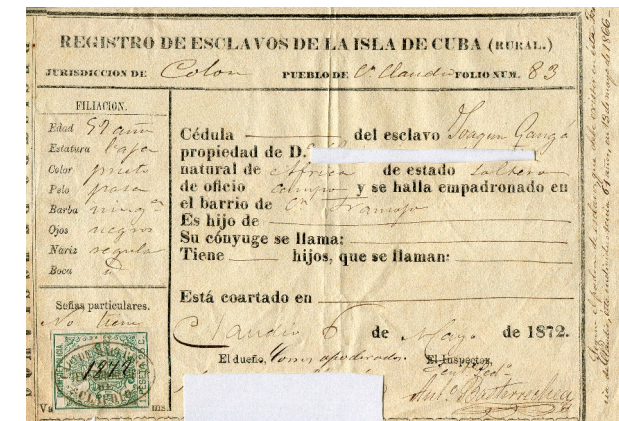 REGISTRO DE ESCLAVOS DE LA ISLA DE CUBA (RURAL.)
JURISDICCION DE Colon PUEBLO DE Cn Claudio FOLIO NUM. 83
FILIACION.
Edad 59 años
Estatura baja
Color prieto
Pelo pasa
Barba ningna
Ojos negros
Nariz regular
Boca id
Señas particulares.
No tiene
1872
Va
ms.
Cédula del esclavo Joaquin Gangá
propiedad de D.
natural de Africa de estado soltero
de oficio campo y se halla empadronado en
el barrio de Cn
Es hijo de
Su cónyuge se llama:
Tiene hijos, que se llaman:
Está coartado en
Claudio 6 de Mayo de 1872.
El dueño, Como apoderado. El Inspector,